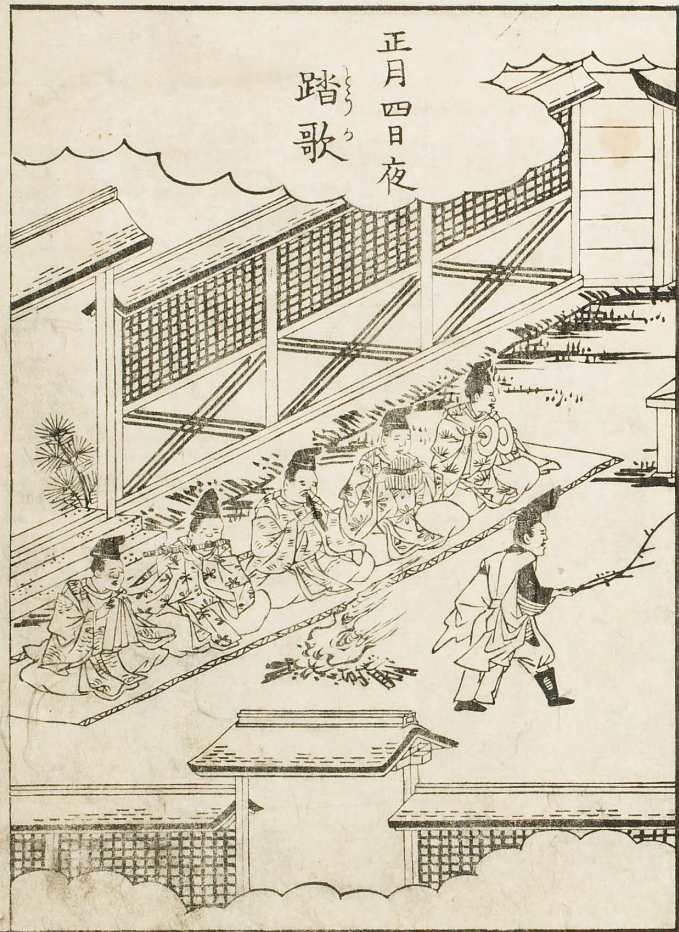 正月四日夜
踏歌
とうか